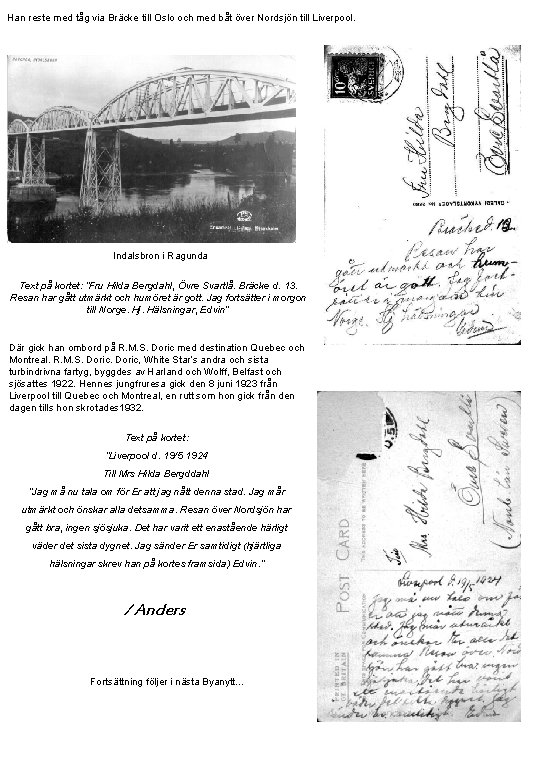 Han reste med tåg via Bräcke till Oslo och med båt över Nordsjön till Liverpool.
Indalsbron i Ragunda
Text på kortet: "Fru Hilda Bergdahl, Övre Svartlå. Bräcke d. 13.
Resan har gått utmärkt och humöret är gott. Jag fortsätter i morgon
till Norge. Hj. Hälsningar, Edvin"
Där gick han ombord på R.M.S. Doric med destination Quebec och
Montreal. R.M.S. Doric. Doric, White Star's andra och sista
turbindrivna fartyg, byggdes av Harland och Wolff, Belfast och
sjösattes 1922. Hennes jungfruresa gick den 8 juni 1923 från
Liverpool till Quebec och Montreal, en rutt som hon gick från den
dagen tills hon skrotades1932.
Text på kortet:
"Liverpool d. 19/5 1924
Till Mrs Hilda Bergddahl
"Jag må nu tala om för Er att jag nått denna stad. Jag mår
utmärkt och önskar alla detsamma. Resan över Nordsjön har
gått bra, ingen sjösjuka. Det har varit ett enastående härligt
väder det sista dygnet. Jag sänder Er samtidigt (hjärtliga
hälsningar skrev han på kortes framsida) Edvin."
/Anders
Fortsättning följer i nästa Byanytt...
10
SVERIGE
Fru Hilda
Bergdahl
Övre Svartlå
Bräcke d. 13.
Resan har
gått utmärkt och hum-
öret är gott. Jag fort-
sätter i morgon till
Norge. Hj. hälsningar
Edvin
U.S.
POST CARD
PRINTED IN
GT BRITAIN
Mrs Hilda Bergdahl
Övre Svartlå
Liverpool d. 19/5 1924
Jag må nu tala om för
Er att jag nått denna
stad. Jag mår utmärkt
och önskar Er alla det
samma Resan över Nord
sjön har gått bra, ingen
sjösjuka. Det har varit
ett enastående härligt
väder det sista dygnet. Jag
sänder Er samtidigt Edvin